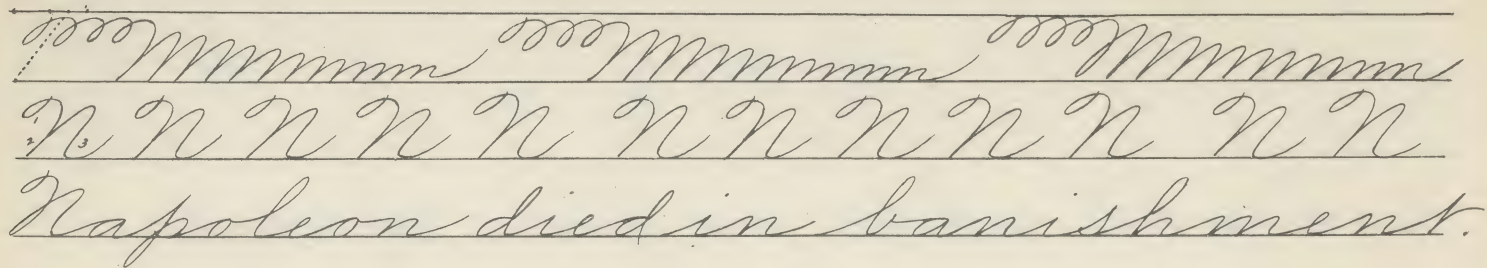 1 2 3
N N N N N N N N N N N N
Napoleon died in banishment.